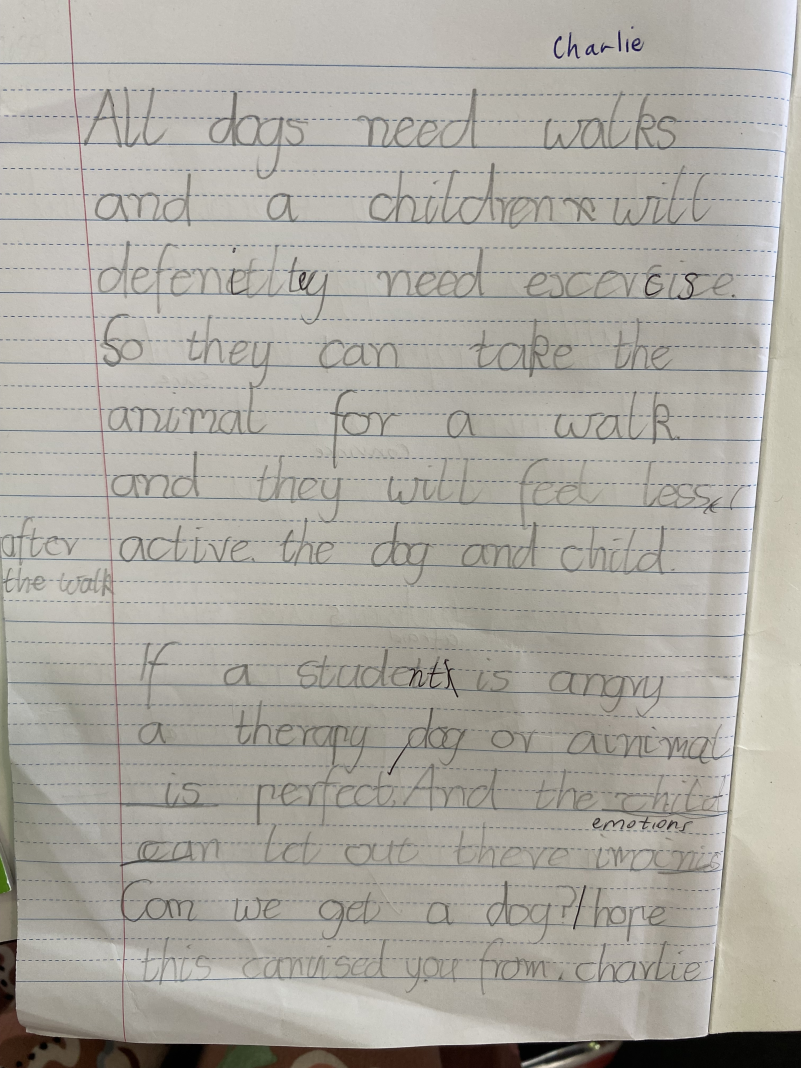 Charlie
All dogs need walks
and a children will
defenitlley need excercise.
So they can take the
animal for a walk.
and they will feel less
after active. the dog and child.
the walk
If a students is angry
a therapy dog or ainimal
is perfect. And the child
emotions
can let out there imoinis
Can we get a dog? I hope
this canvised you from. charlie